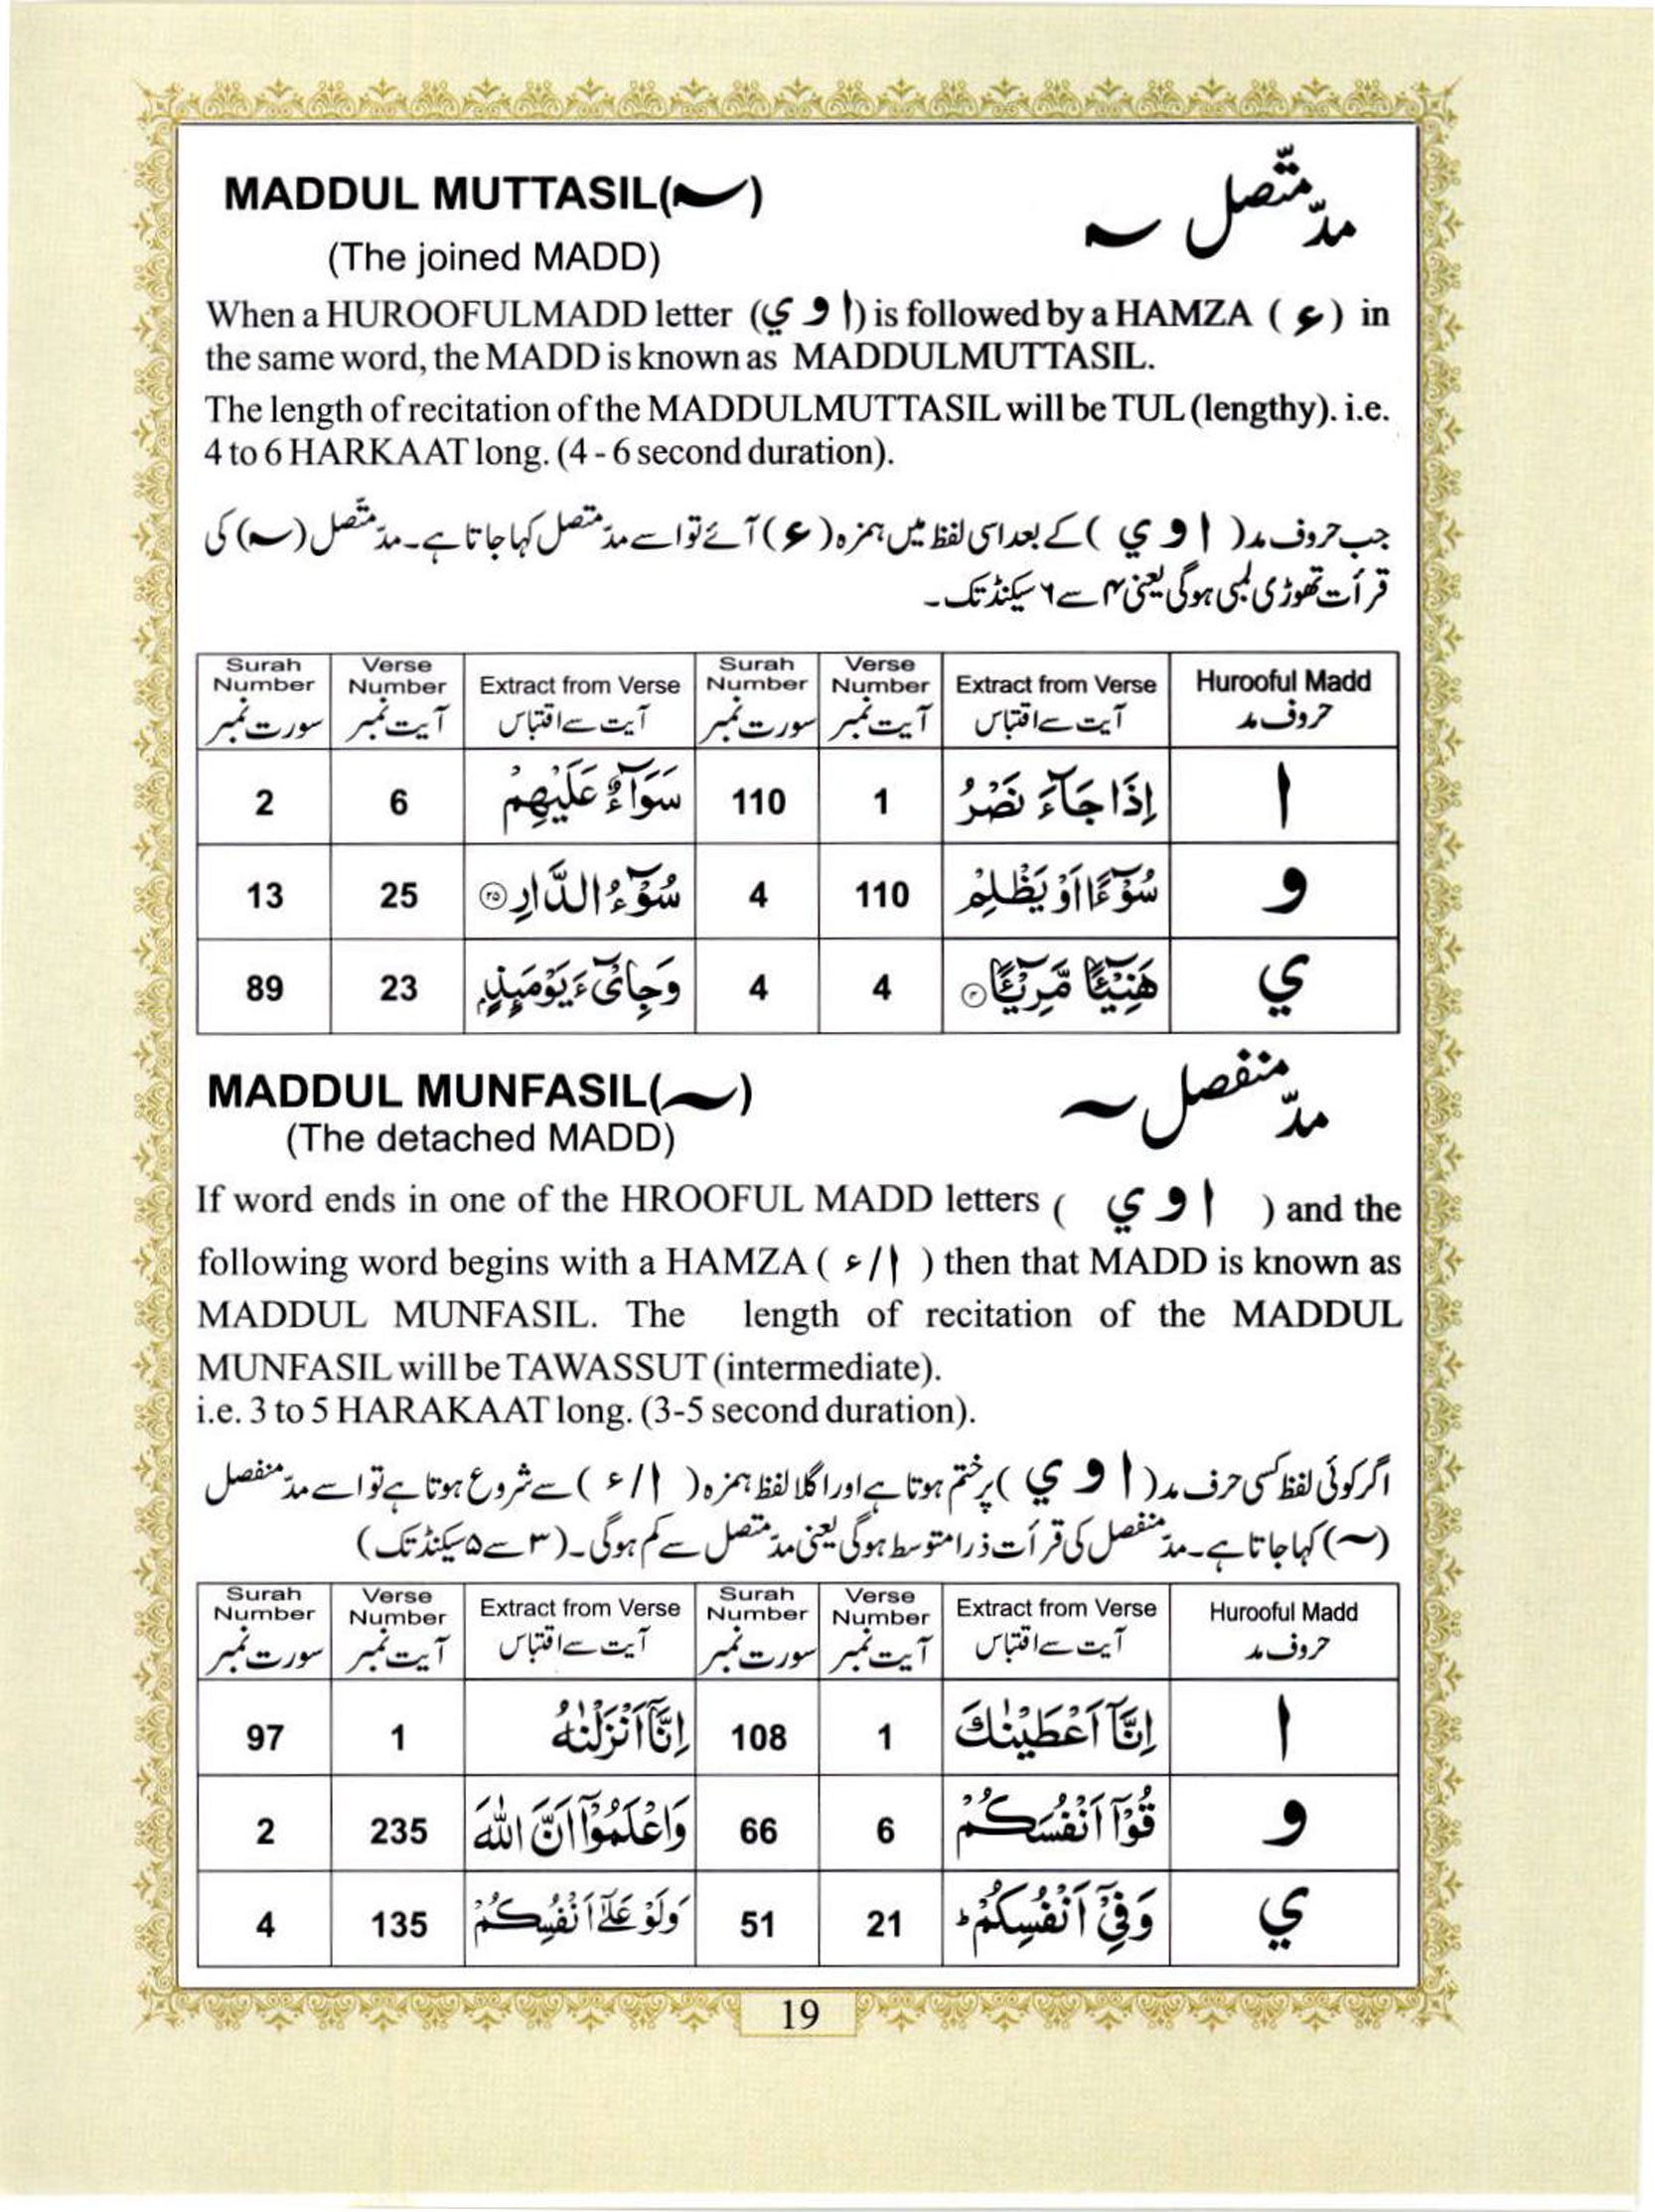 MADDUL MUTTASIL(~) مدّ متّصل ~
(The joined MADD)
When a HUROOFULMADD letter (ا و ي) is followed by a HAMZA ( ء ) in
the same word, the MADD is known as MADDULMUTTASIL.
The length of recitation of the MADDULMUTTASIL will be TUL (lengthy). i.e.
4 to 6 HARKAAT long. (4 - 6 second duration).
جب حروف مد( ا و ي )کے بعد اسی لفظ میں ہمزہ( ء )آئے تو اسے مدّ متّصل کہا جاتا ہے۔ مدّ متّصل(~) کی
قرأت تھوڑی لمبی ہوگی یعنی ۴ سے ۶ سیکنڈ تک۔
Surah Number سورت نمبر | Verse Number آیت نمبر | Extract from Verse آیت سے اقتباس | Surah Number سورت نمبر | Verse Number آیت نمبر | Extract from Verse آیت سے اقتباس | Hurooful Madd حروف مد
2 | 6 | سَوَآءٌ عَلَيْهِمْ | 110 | 1 | إِذَا جَآءَ نَصْرُ | ا
13 | 25 | سُوْٓءُ الدَّارِ ۝٢٥ | 4 | 110 | سُوْٓءًا اَوْ يَظْلِمْ | و
89 | 23 | وَجِايْٓءَ يَوْمَئِذٍۭ | 4 | 4 | هَنِيْٓـًٔا مَّرِيْٓـًٔا ۝٤ | ي
MADDUL MUNFASIL(~) مدّ منفصل ~
(The detached MADD)
If word ends in one of the HROOFUL MADD letters ( ا و ي ) and the
following word begins with a HAMZA ( ا/ء ) then that MADD is known as
MADDUL MUNFASIL. The length of recitation of the MADDUL
MUNFASIL will be TAWASSUT (intermediate).
i.e. 3 to 5 HARAKAAT long. (3-5 second duration).
اگر کوئی لفظ کسی حرف مد( ا و ي )پر ختم ہوتا ہے اور اگلا لفظ ہمزہ( ا/ء )سے شروع ہوتا ہے تو اسے مدّ منفصل
(~) کہا جاتا ہے۔ مدّ منفصل کی قرأت ذرا متوسط ہوگی یعنی مدّ متّصل سے کم ہوگی۔(۳ سے ۵ سیکنڈ تک)
Surah Number سورت نمبر | Verse Number آیت نمبر | Extract from Verse آیت سے اقتباس | Surah Number سورت نمبر | Verse Number آیت نمبر | Extract from Verse آیت سے اقتباس | Hurooful Madd حروف مد
97 | 1 | اِنَّآ اَنْزَلْنٰهُ | 108 | 1 | اِنَّآ اَعْطَيْنٰكَ | ا
2 | 235 | وَاعْلَمُوْٓا اَنَّ اللّٰهَ | 66 | 6 | قُوْٓا اَنْفُسَكُمْ | و
4 | 135 | وَلَوْ عَلٰٓى اَنْفُسِكُمْ | 51 | 21 | وَفِيْٓ اَنْفُسِكُمْ ؕ | ي
19